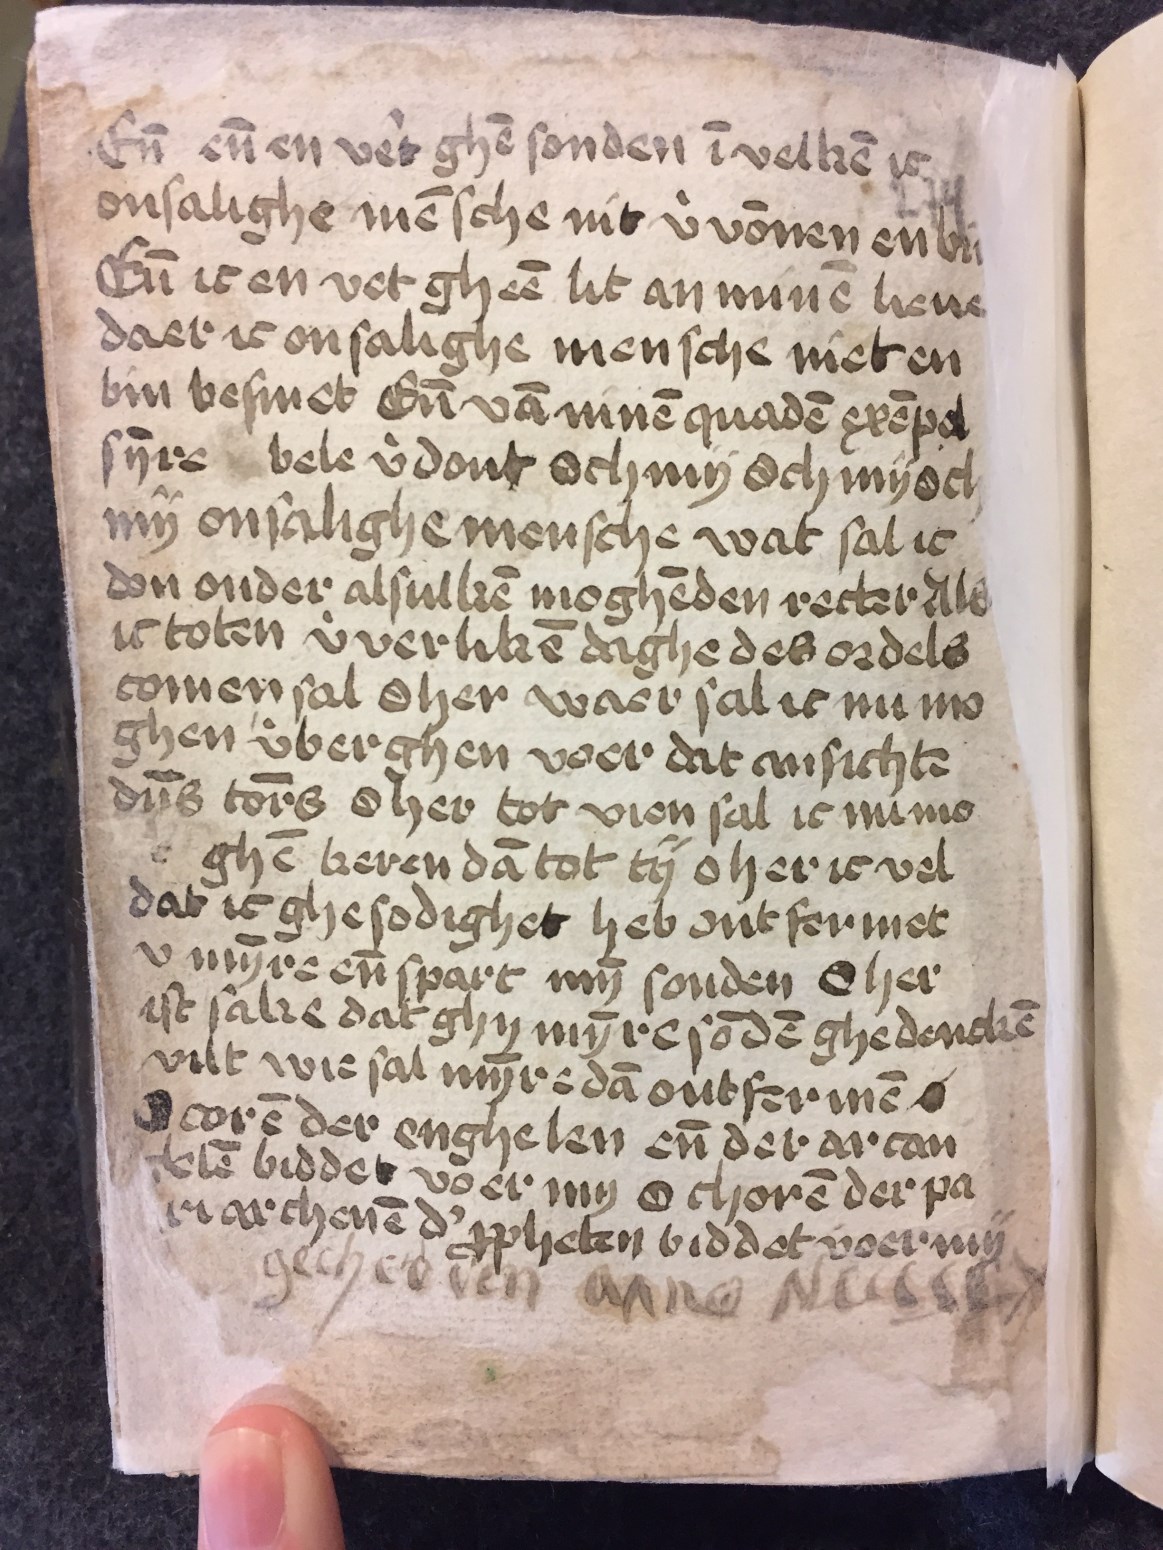 Eñ eñ en vet ghē sonden ī velkē ic
onsalighe mēsche nit v'vōnen en bin
Eñ ic en vet gheē lit an minē lieue
daer ic onsalighe mensche niet en
bin besmet Eñ vā minē quadē exēpel
sÿre vele v'dont Och mij Och mij Och
mij onsalighe mensche wat sal ic
don onder alsulkē moghēden recter Als
ic toten v'verlikē daghe des ordels
comen sal O her waer sal ic nu mo
ghen v'berghen voer dat ansichte
dīs torīs O her tot vien sal ic nu mo
ghē keren dā tot tij o her ic vel
dat ic ghesodighet heb ontfermet
v mÿre eñ spart mÿ sonden O her
ist sake dat ghy mÿre sōdē ghedenckē
vilt wie sal mÿre dā ontfermē O
O corē der enghelen eñ der arcan
kelē biddet voer my O chorē der pa
triarchen eñ d' ꝓpheten biddet voer mij
anno